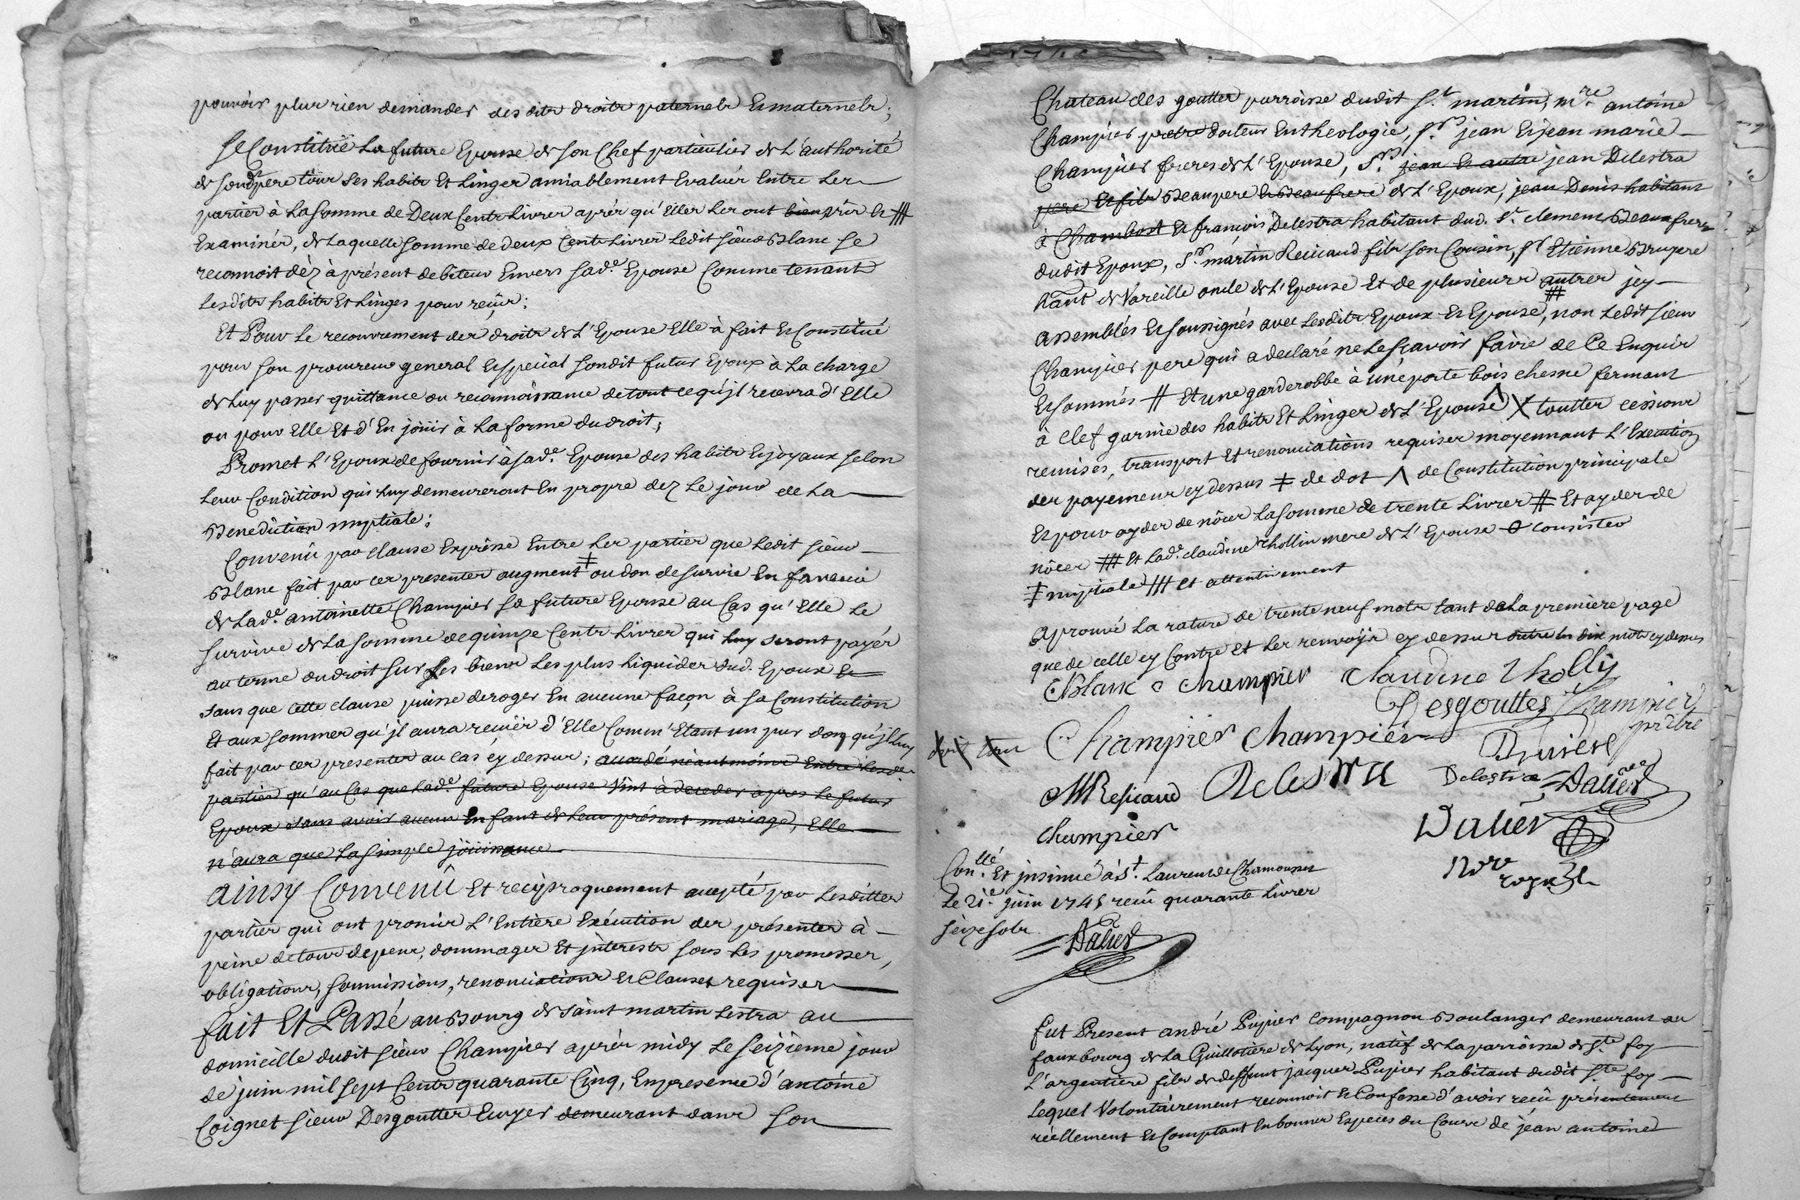 pouvoir plus rien demander des dits droits paternels Et maternels;
Se Constitüe La future Epouse de son Chef particulier de L'authorité
de sondt pere tous ses habits Et Linges amiablement Evalués Entre Les
parties à La somme de Deux Cents Livres aprés qu'Elles Les ont bien vûs Et ⧻
Examinés, de Laquelle somme de deux Cents Livres Ledit sieur Blanc se
reconnoit déz à présent debiteur Envers sade. Epouse Comme tenant
Lesdits habits Et Linges pour reçûs:
Et Pour Le recouvrement des droits de L'Epouse Elle à fait Et Constitué
pour son procureur general Et special sondit futur Epoux à La charge
de Luy passer quittance ou reconnoissance de tout ce qu'il recevra d'Elle
ou pour Elle Et d'En joüir à La forme du droit;
Promet L'Epoux de fournir à sade. Epouse des habits Et joyaux selon
Leur Condition qui Luy demeureront En propre dez Le jour de La
Benediction nuptiale;
Convenû par clause Expresse Entre Les parties que Ledit sieur
Blanc fait par ces presentes augment ‡ ou don de survie En faveur
de Lade. antoinette Champier sa future Epouse au Cas qu'Elle Le
survive de La somme de quinze Cents Livres qui Luy seront payés
au terme du droit sur ses biens Les plus Liquides dud. Epoux Et
sans que cette clause puisse deroger En aucune façon à sa Constitution
Et aux sommes qu'il aura reçües d'Elle Comm' Etant un pur don qu'il Luy
fait par ces presentes au cas cy dessus; accordé néantmoins Entre Lesdes
parties qu'au Cas que Lade. future Epouse Vint à deceder apres Le futur
Epoux sans avoir aucun Enfant de Leur présent mariage, Elle
n'aura que La simple joüissance
ainsy Convenû Et reciproquement accepté par Lesdittes
parties qui ont promis L'Entiere Exécution des présentes à
peine de tous depens, dommages Et jnterests sous Les promesses,
obligations, soumissions, renonciations Et Clauses requises
fait Et Passé au Bourg de saint martin Lestra au
domicille dudit sieur Champier aprés midy Le seizieme jour
de juin mil sept Cents quarante Cinq, En presence d'antoine
Coignet sieur Desgouttes Ecuyer demeurant dans son
Chateau des gouttes parroisse dudit St. martin, mre. antoine
Champier pretre docteur En theologie, srs. jean Et jean marie
Champier freres de L'Epouse, srs. jean Et autre jean Delestra
pere Et fils Beaupere Et Beaufrere de L'Epoux, jean Denis habitant
à Chambost Et françois Delestra habitant dud. St. clement Beaufrere
dudit Epoux, sr. martin Ressicaud fils son Cousin, sr. Etienne Bruyere
hant. de Vareille oncle de L'Epouse Et de plusieurs autres jcy
assemblés Et soussignés avec Lesdits Epoux Et Epouse, non Ledit sieur
Champier pere qui a declaré ne Le sçavoir faire de Ce Enquis
Et sommés ⧺ Et une garderobbe à une porte bois chesne fermant
à clef garnie des habits Et Linges de L'Epouse Λ X touttes cessions
remises, transport Et renonciations requises moyennant L'Execution
des payemens cy dessus ‡ de dot Λ de Constitution principale
Et pour ayder de nôces La somme de trente Livres ⧺ Et ayder de
nôces ⧻ Et Lade. claudine thollin mere de L'Epouse o consister
‡ nuptiale ⧻ Et attentivement
aprouvé La rature de trente neuf mots tant de La premiere page
que de celle cy Contre Et Les renvoys cy dessus outre Les dix mots cy dessus
CBlanc a champier claudine tholly
Desgouttes Champier
prêtre
Champier champier Bruiere
MRessicaud Delestra Delestra Dalier
champier Dalier
Nore
royal
Conllé. Et jnsinué à St. Laurent de Chamousset
Le 21e. juin 1745 recû quarante Livres
seize sols
Dalier
fut Present andré Pupier Compagnon Boulanger demeurant au
fauxbourg de La Guillotiere de Lyon, natif de La parroisse de Ste. foy
L'argentiere fils de deffunt jacques Pupier habitant dudit Ste. foy
Lequel Volontairement reconnoit Et Confesse d'avoir recû présentement
réellement Et Comptant En bonnes Especes du Cours de jean antoine